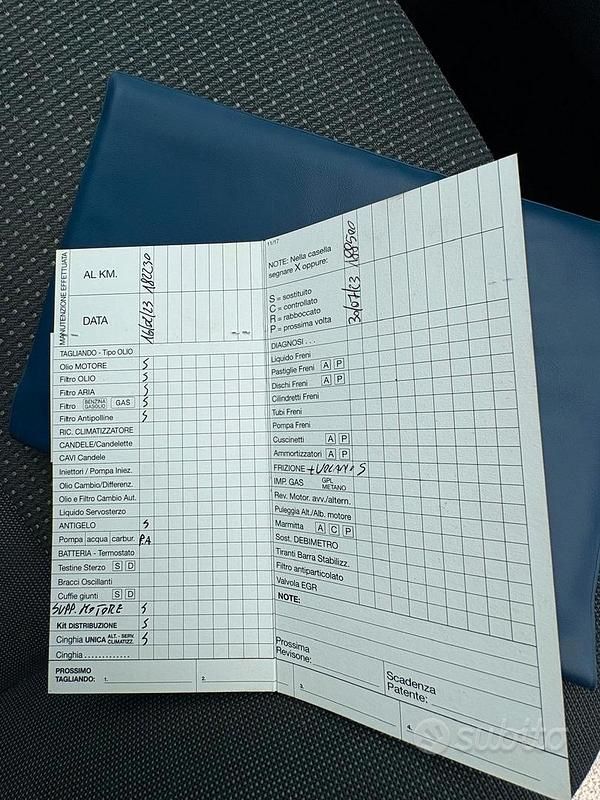 MANUTENZIONE EFFETTUATA
AL KM. 182230
DATA 16/02/23
TAGLIANDO - Tipo OLIO
Olio MOTORE S
Filtro OLIO S
Filtro ARIA S
Filtro BENZINA GASOLIO GAS S
Filtro Antipolline S
RIC. CLIMATIZZATORE
CANDELE/Candelette
CAVI Candele
Iniettori / Pompa Iniez.
Olio Cambio/Differenz.
Olio e Filtro Cambio Aut.
Liquido Servosterzo
ANTIGELO S
Pompa acqua carbur. P.A
BATTERIA - Termostato
Testine Sterzo S D
Bracci Oscillanti
Cuffie giunti S D
SUPP. MOTORE S
Kit DISTRIBUZIONE S
Cinghia UNICA ALT. - SERV. CLIMATIZZ. S
Cinghia ............
PROSSIMO
TAGLIANDO: 1. 2.
11/17
NOTE: Nella casella
segnare X oppure:
S = sostituito
C = controllato
R = rabboccato
P = prossima volta
188500
30/07/23
DIAGNOSI . . .
Liquido Freni
Pastiglie Freni A P
Dischi Freni A P
Cilindretti Freni
Tubi Freni
Pompa Freni
Cuscinetti A P
Ammortizzatori A P
FRIZIONE + VOLANO S
IMP. GAS GPL METANO
Rev. Motor. avv./altern.
Puleggia Alt./Alb. motore
Marmitta A C P
Sost. DEBIMETRO
Tiranti Barra Stabilizz.
Filtro antiparticolato
Valvola EGR
NOTE:
Prossima
Revisone:
Scadenza
Patente:
3.
4.
subito